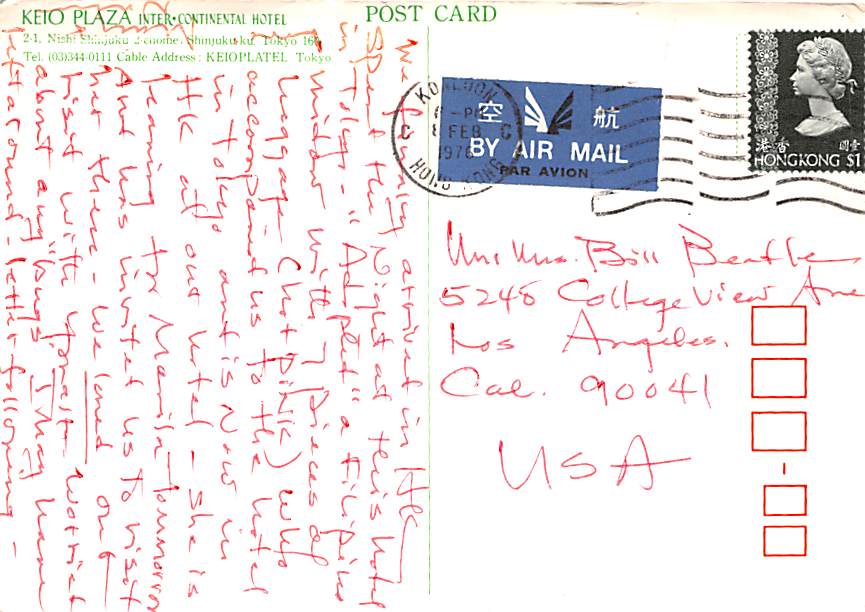 KEIO PLAZA INTER•CONTINENTAL HOTEL
2-1, Nishi Shinjuku 2-chome, Shinjuku-ku, Tokyo 160
Tel. (03)344-0111 Cable Address: KEIOPLATEL Tokyo
POST CARD
We finally arrived in HK
Spent the night at this hotel
in Tokyo - "Adopted" a Filipino
widow with 7 pieces of
luggage (hot pink) who
accompanied us to the hotel
in Tokyo and is now in
HK at our hotel - she is
leaving for Manila Tommorrow
And has invited us to visit
her there - We loved our
visit with you
about any "bugs" I may have
left around - letter following -
KOWLOON
8 FEB
1976
C C
HONG KONG
空 航
BY AIR MAIL
PAR AVION
香港 壹圓
HONG KONG $1
Mr & Mrs. Bill
5245 College View Ave
Los Angeles.
Cal. 90041
USA